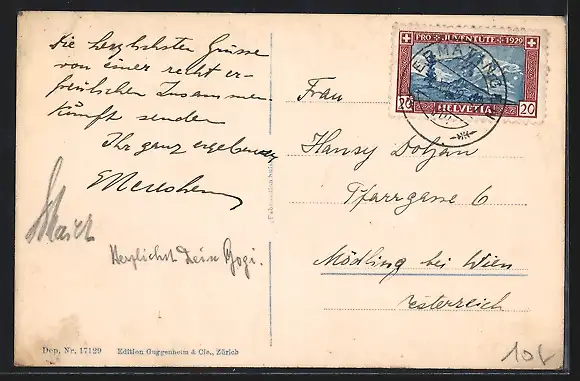 Die herzlichsten Grüsse
von einer recht er-
freulichen Zusammen-
kunft senden
Ihr ganz ergebener
Herzlichst Dein Gogi.
PRO JUVENTUTE 1929
ERMATINGEN
20 HELVETIA 20
Frau
Hansy Doljan
Pfarrgasse 6
Mödling bei Wien
Österreich
Dep. Nr. 17129 Edition Guggenheim & Cie., Zürich